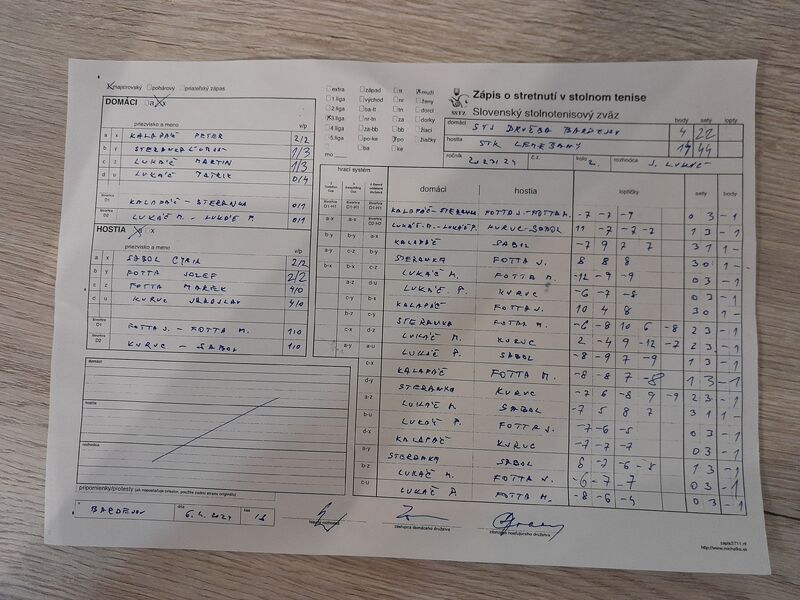 majstrovský pohárový priateľský zápas
DOMÁCI a x
priezvisko a meno v/p
a x KALAPÁČ PETER 2/2
b y STERANKA ĽUBOŠ 1/3
c z LUKÁČ MARTIN 1/3
d u LUKÁČ PATRIK 0/4
štvorhra D1 KALAPÁČ - STERANKA 0/1
štvorhra D2 LUKÁČ M. - LUKÁČ P. 0/1
HOSTIA a x
priezvisko a meno v/p
a x SABOL CYRIL 2/2
b y FOTTA JOZEF 2/2
c z FOTTA MAREK 4/0
d u KURUC JAROSLAV 4/0
štvorhra D1 FOTTA J. - FOTTA M. 1/0
štvorhra D2 KURUC - SABOL 1/0
domáci
hostia
rozhodca
pripomienky/protesty (ak nepostačuje priestor, použite zadnú stranu originálu)
v BARDEJOV dňa 6.4.2024 čas
hlavný rozhodca
zástupca domáceho družstva
zástupca hosťujúceho družstva
extra západ st muži
1.liga východ nr ženy
2.liga ba-tt tn dorci
3.liga nr-tn za dorky
4.liga za-bb bb žiaci
5.liga po-ke po žiačky
ba ke
mo
SSTZ
Zápis o stretnutí v stolnom tenise
Slovenský stolnotenisový zväz
body sety lopty
domáci STJ DRUŽBA BARDEJOV 4 22
hostia STK LEMEŠANY 14 44
ročník 2023/24 č.z. kolo 2. rozhodca J. LUKÁČ
hrací systém domáci hostia loptičky sety body
KALAPÁČ - STERANKA FOTTA J. - FOTTA M. -7 -7 -9 0 3 - 1
LUKÁČ M. - LUKÁČ P. KURUC - SABOL 11 -7 -7 -7 1 3 - 1
KALAPÁČ SABOL -7 9 7 7 3 1 1 -
STERANKA FOTTA J. 8 8 8 3 0 1 -
LUKÁČ M. FOTTA M. -12 -9 -9 0 3 - 1
LUKÁČ P. KURUC -6 -7 -8 0 3 - 1
KALAPÁČ FOTTA J. 10 4 8 3 0 1 -
STERANKA FOTTA M. -6 -8 10 6 -8 2 3 - 1
LUKÁČ M. KURUC 2 -4 9 -12 -7 2 3 - 1
LUKÁČ P. SABOL -8 -9 7 -9 1 3 - 1
KALAPÁČ FOTTA M. -8 -8 7 -8 1 3 - 1
STERANKA KURUC -7 6 -8 9 -9 2 3 - 1
LUKÁČ M. SABOL -7 5 8 7 3 1 1 -
LUKÁČ P. FOTTA J. -7 -6 -5 0 3 - 1
KALAPÁČ KURUC -7 -7 -7 0 3 - 1
STERANKA SABOL 6 -7 -6 -8 1 3 - 1
LUKÁČ M. FOTTA J. -6 -7 -7 0 3 - 1
LUKÁČ P. FOTTA M. -8 -6 -4 0 3 - 1
http://www.michalka.sk